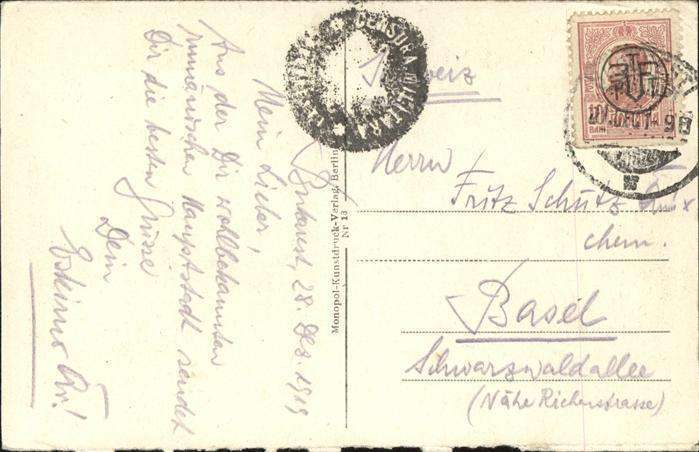 Bukarest, 28. Dez. 1919
Mein Lieber,
Aus der Dir wohlbekannten
rumänischen Hauptstadt sendet
Dir die besten Grüsse
Dein
Eskimo
Monopol-Kunstdruck-Verlag, Berlin
Nr 13
CENSURA MILITARA
Schweiz
10 BANI
Herrn
Fritz Schütz
chem.
Basel
Schwarzwaldallee
(Nähe Riehenstrasse)